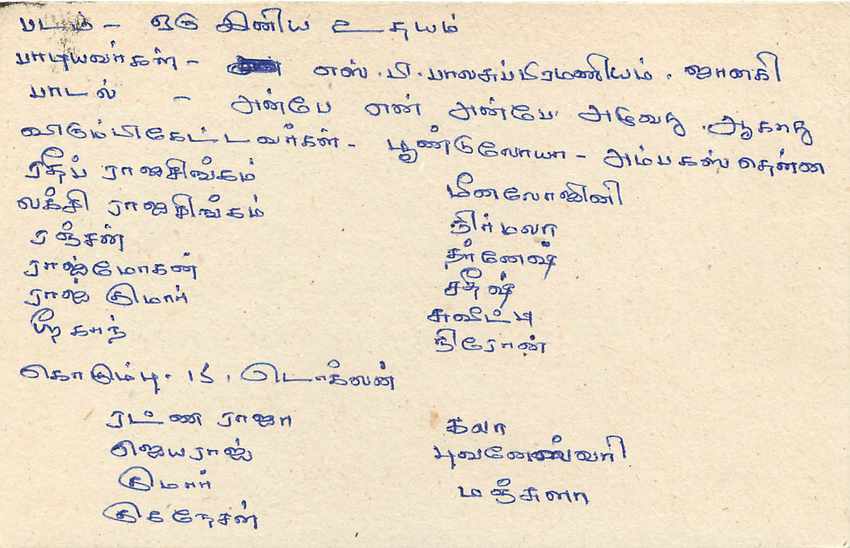 படம் - ஒரு இனிய உதயம்
பாடியவர்கள் - எஸ்.பி.பாலசுப்பிரமணியம். ஜானகி
பாடல் - அன்பே என் அன்பே அழுவது ஆகாது
விரும்பிகேட்டவர்கள் - பூண்டுலோயா - அம்பகஸ்தென்ன
ரதீப் ராஜசிங்கம்
லக்சி ராஜசிங்கம்
ரஞ்சன்
ராஜ்மோகன்
ராஜ் குமார்
ஸ்ரீகாந்
மீனலோஜினி
நிர்மலா
தர்னேஷ்
சதீஷ்
சுவீட்டி
நிரோன்
கொழும்பு. 15. டொக்லன்
ரட்ண ராஜா
ஜெயராஜ்
குமார்
குகநேசன்
கலா
புவனேஸ்வரி
மஞ்சுளா